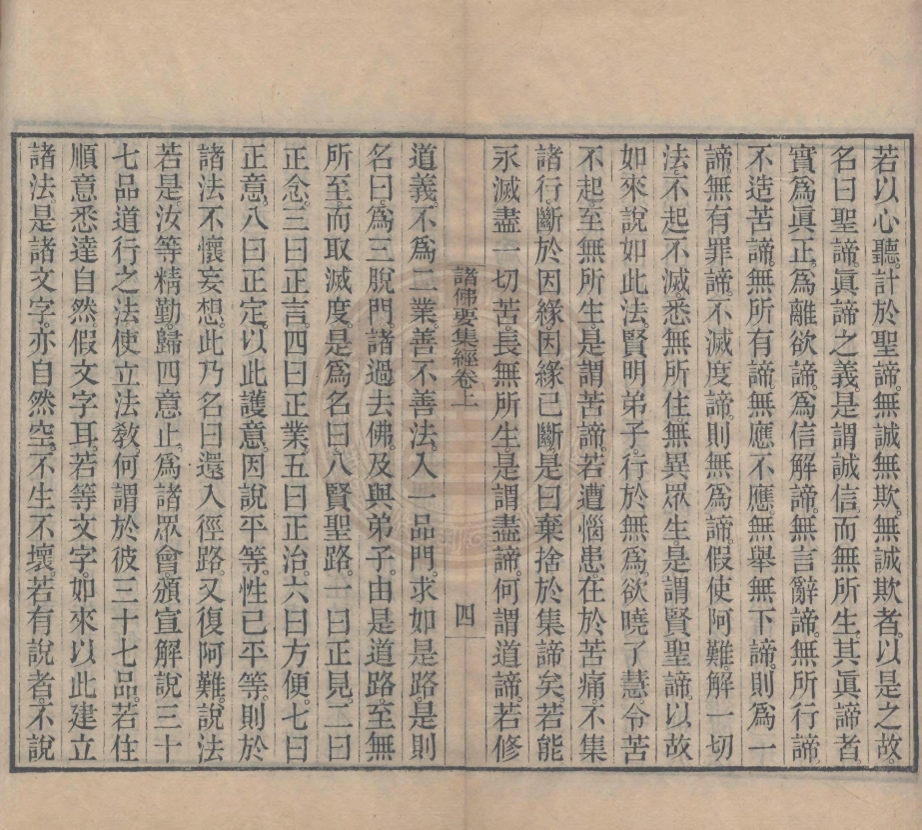 若以心聽。計於聖諦。無誠無欺。無誠欺者。以是之故。
名曰聖諦。眞諦之義。是謂誠信。而無所生。其眞諦者。
實爲眞正。爲離欲諦。爲信解諦。無言辭諦。無所行諦。
不造苦諦。無所有諦。無應不應。無舉無下諦。則爲一
諦。無有罪諦。不滅度諦。則無爲諦。假使阿難。解一切
法。不起不滅。悉無所住。無異眾生。是謂賢聖諦。以故
如來說如此法。賢明弟子。行於無爲。欲曉了慧。令苦
不起。至無所生。是謂苦諦。若遭惱患。在於苦痛。不集
諸行。斷於因緣。因緣已斷。是曰棄捨於集諦矣。若能
永滅盡一切苦。長無所生。是謂盡諦。何謂道諦。若修
諸佛要集經卷上 四
道義。不爲二業。善不善法。入一品門。求如是路。是則
名曰。爲三脫門。諸過去佛。及與弟子。由是道路。至無
所至。而取滅度。是爲名曰。八賢聖路。一曰正見。二曰
正念。三曰正言。四曰正業。五曰正治。六曰方便。七曰
正意。八曰正定。以此護意。因說平等。性已平等。則於
諸法不懷妄想。此乃名曰還入徑路。又復阿難。說法
若是。汝等精勤。歸四意止。爲諸眾會頒宣解說三十
七品道行之法。使立法敎。何謂於彼三十七品。若住
順意。悉達自然。假文字耳。若等文字。如來以此建立
諸法。是諸文字。亦自然空。不生不壞。若有說者。不說